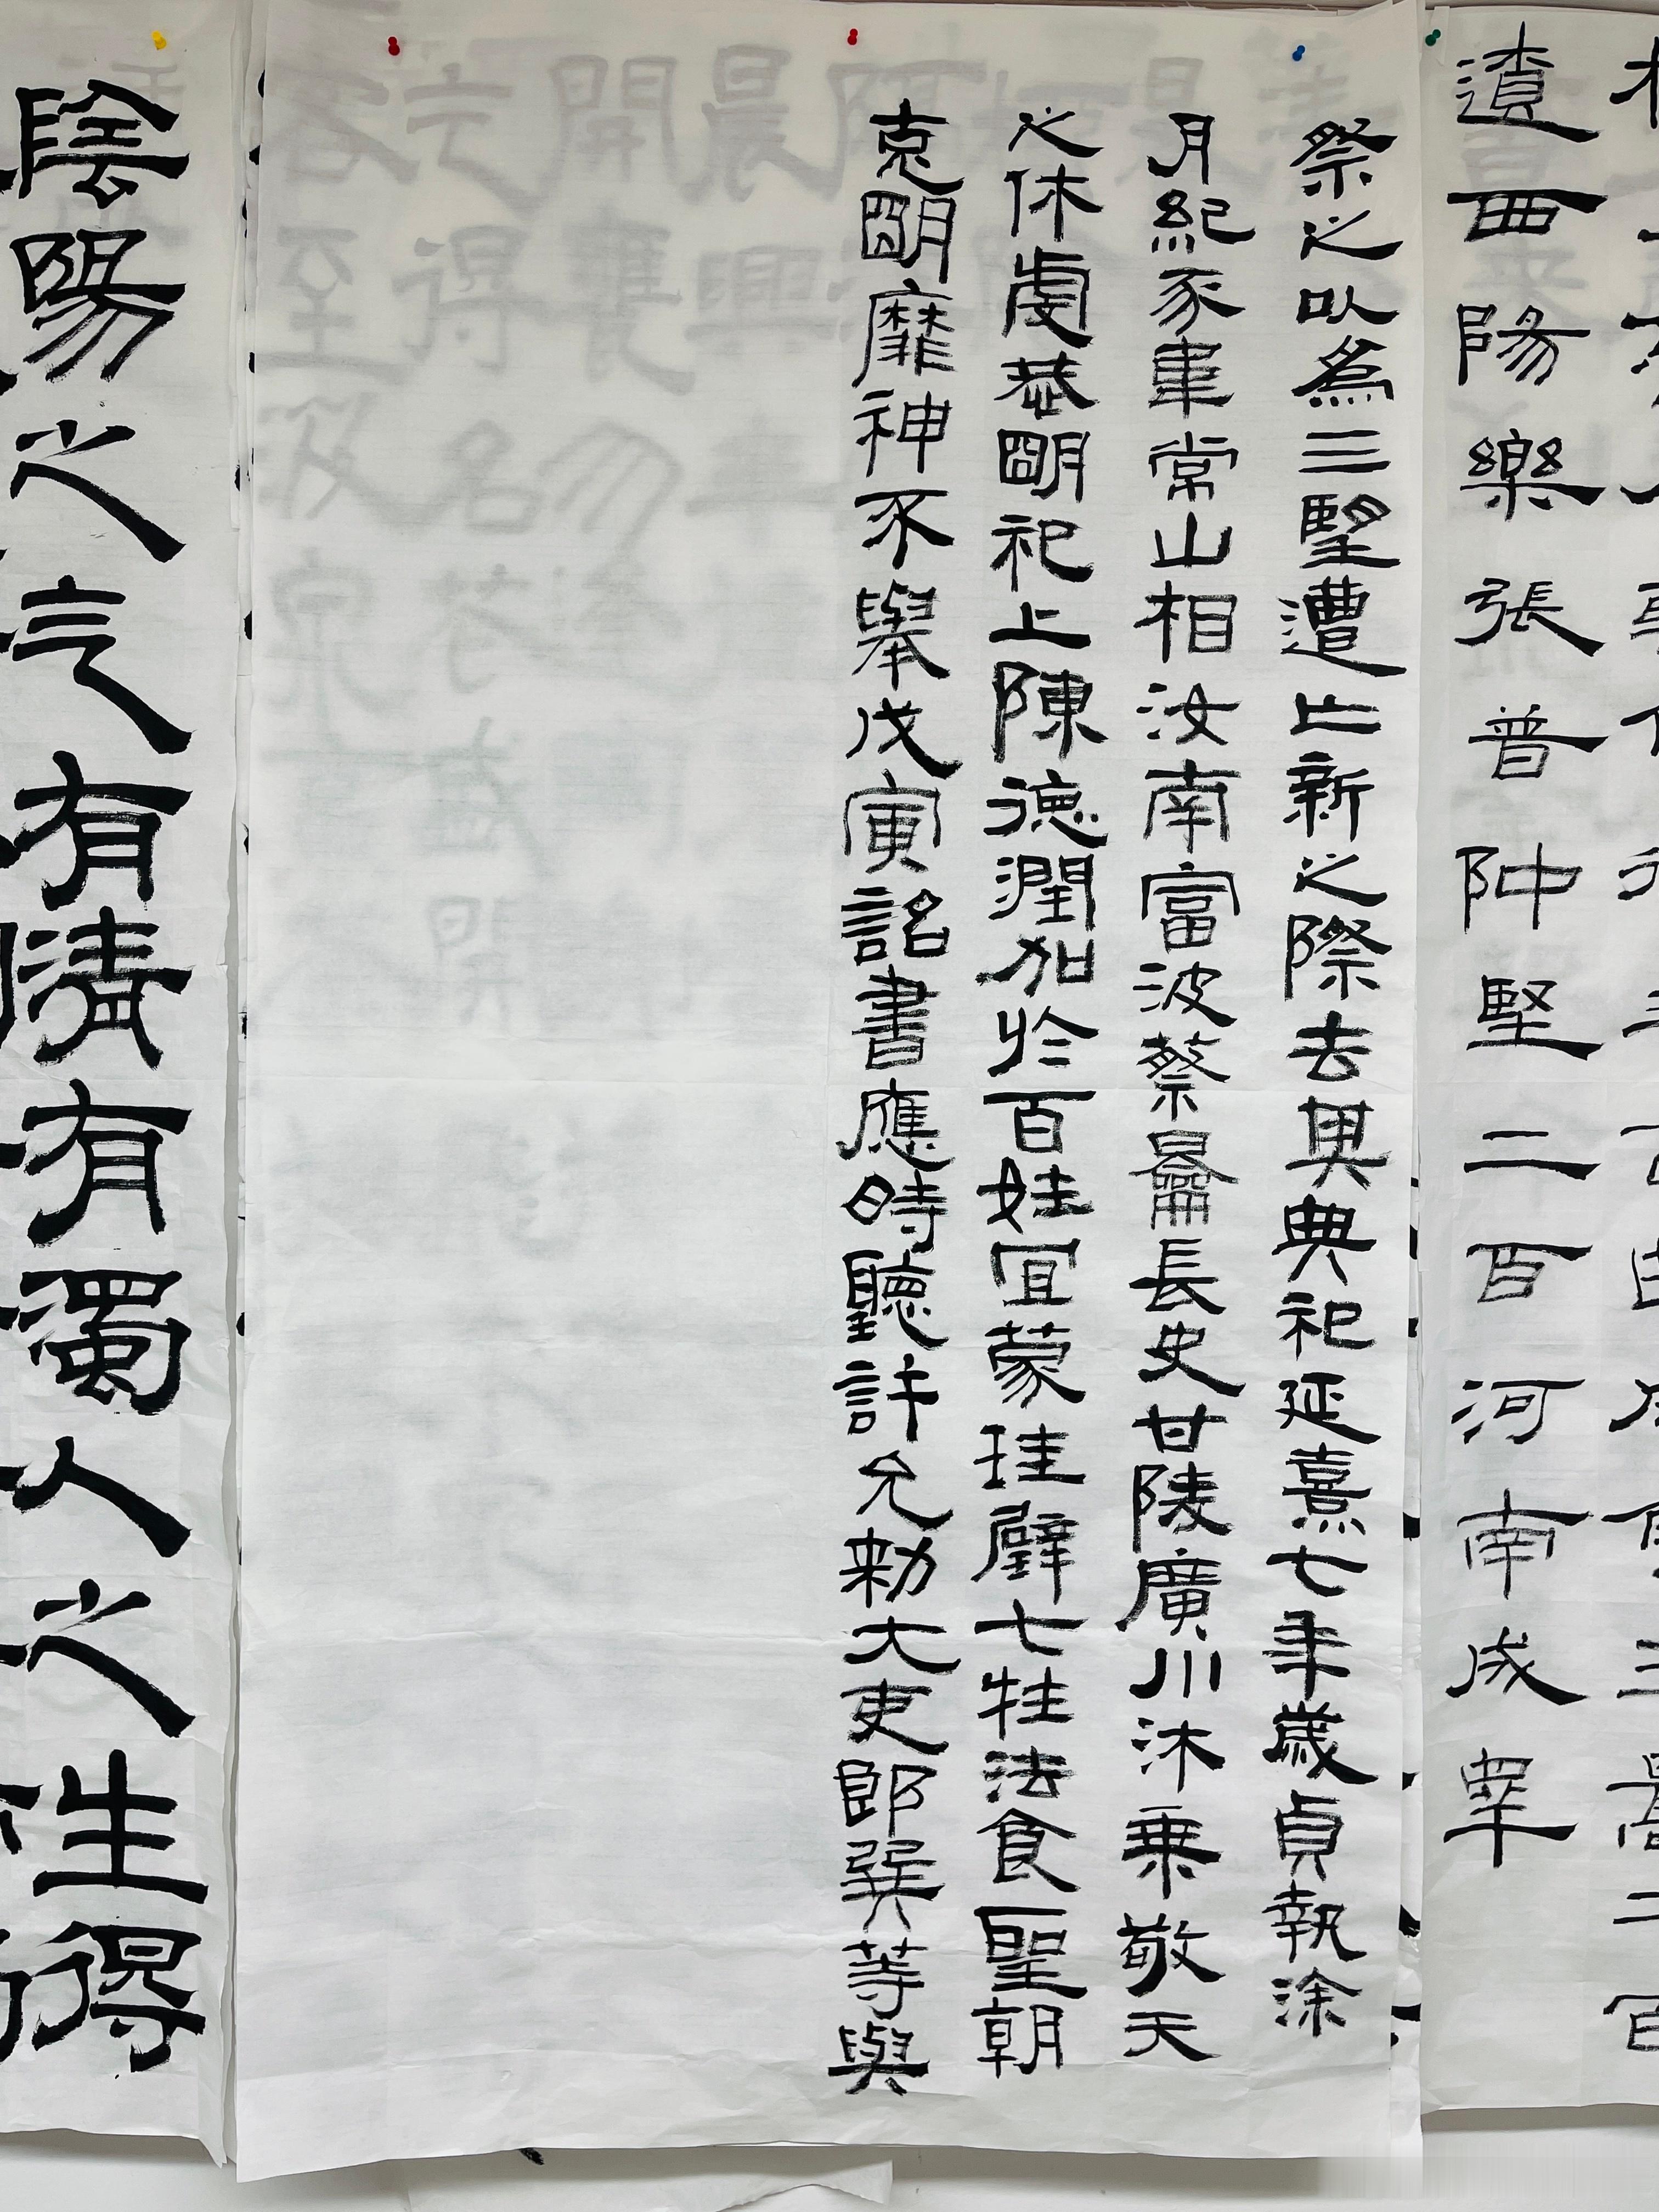 遺西陽樂張普仲堅二百河南成睪
祭之以爲三望遭亡新之際去其典祀延熹七年歲貞執涂
月紀豕韋常山相汝南富波蔡長史甘陵廣川沐乘敬天
之休虔恭明祀上陳德潤加於百姓宜蒙珪璧七牲法食聖朝
克明靡神不舉戊寅詔書應時聽許允勑大吏郎巽等與
陰陽之氣有清有濁人之性得